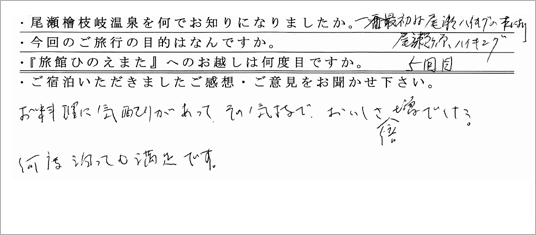 ・尾瀬檜枝岐温泉を何でお知りになりましたか。一番最初は尾瀬ハイキングの
・今回のご旅行の目的はなんですか。 尾瀬ヶ原ハイキング
・『旅館ひのえまた』へのお越しは何度目ですか。 5回目
・ご宿泊いただきましたご感想・ご意見をお聞かせ下さい。
お料理に気配りがあって、その気持で、おいしさ倍増です。
何度泊っても満足です。